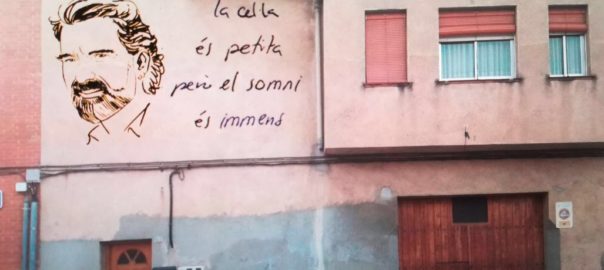 la cel·la
és petita
però el somni
és immens